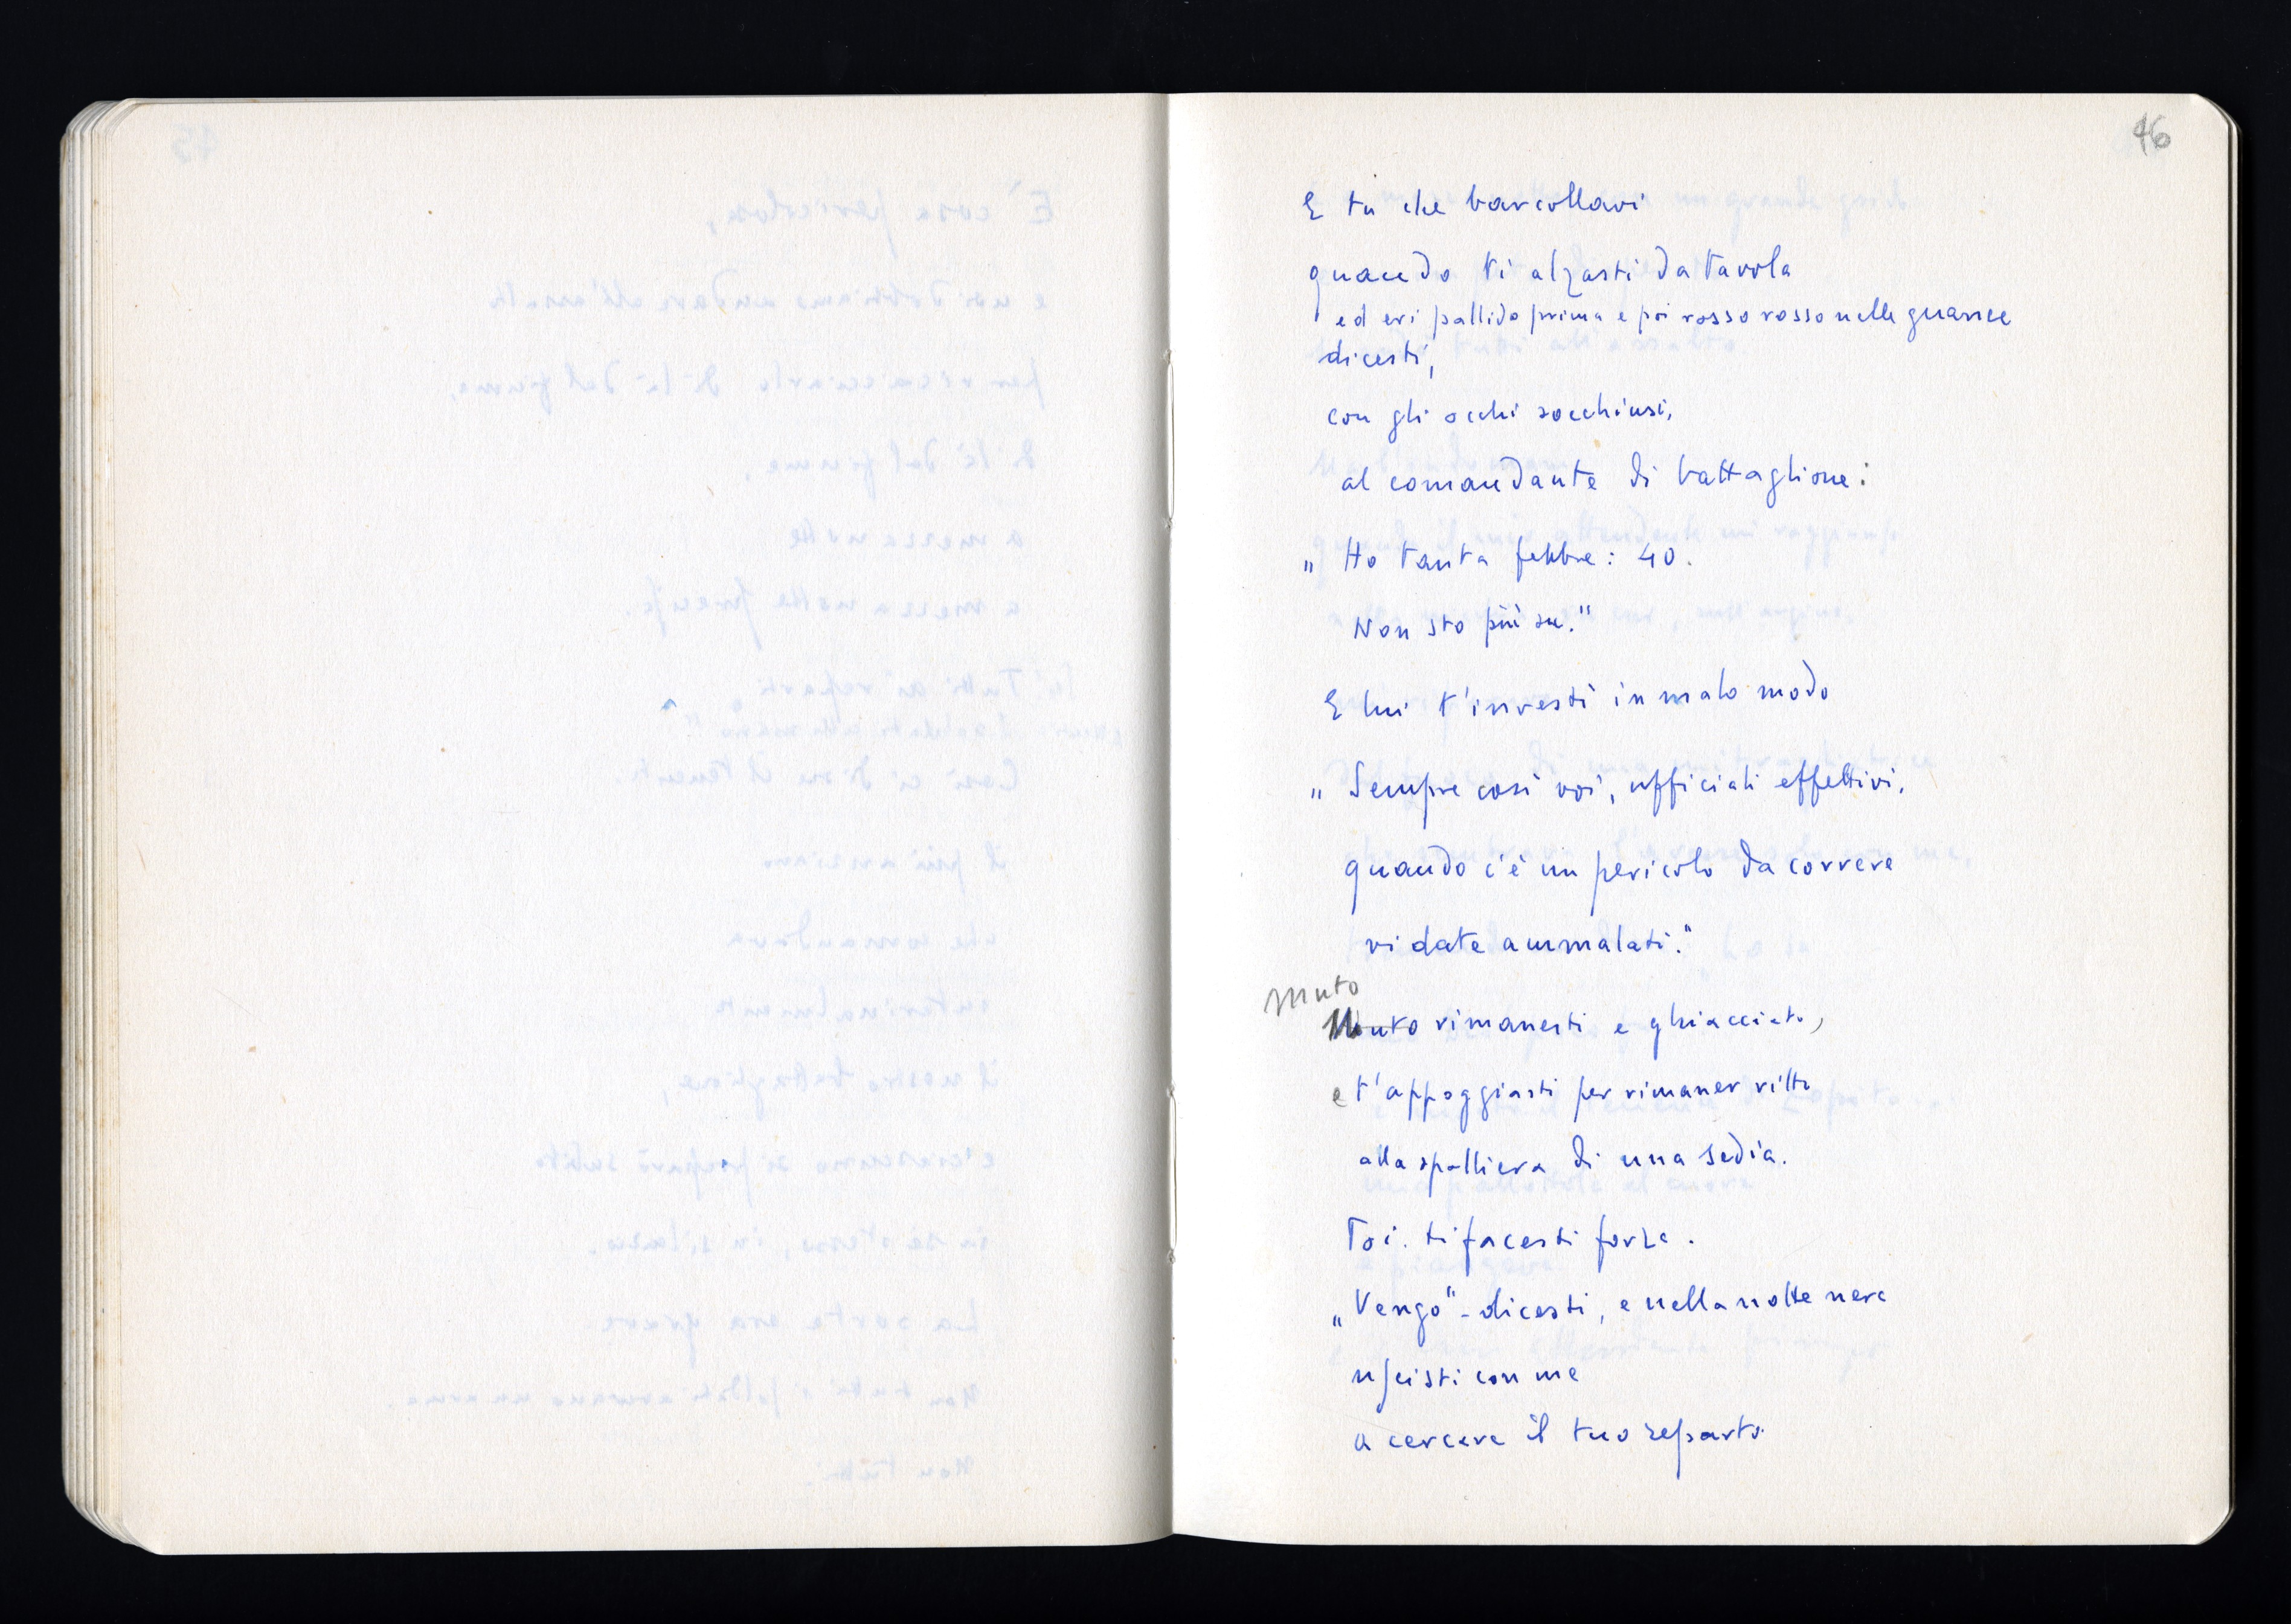 46
E tu che barcollavi
quando ti alzasti da tavola
ed eri pallido prima e poi rosso rosso nelle guance
dicesti,
con gli occhi socchiusi,
al comandante di battaglione:
„ Ho tanta febbre: 40.
Non sto più su."
E lui t'investì in malo modo
„ Sempre così voi, ufficiali effettivi,
quando c'è un pericolo da correre
vi date ammalati."
Muto
Muto rimanesti e ghiacciato,
e t'appoggiasti per rimaner ritto
alla spalliera di una sedia.
Poi. ti facesti forza.
„Vengo" - dicesti, e nella notte nera
uscisti con me
a cercare il tuo reparto